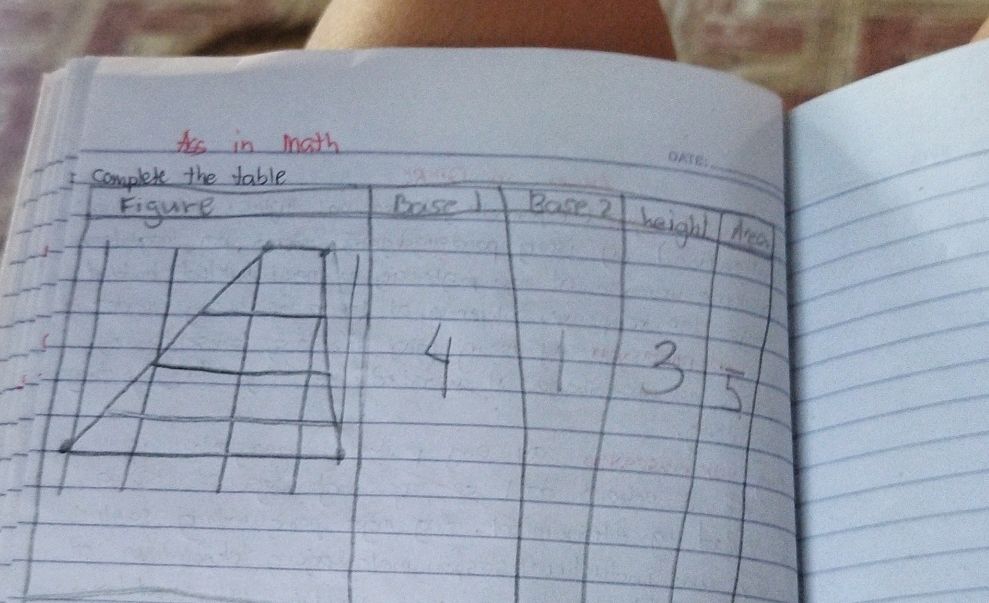 Ass in math
DATE:
Complete the table
Figure Base 1 Base 2 height Area
4 1 3 5